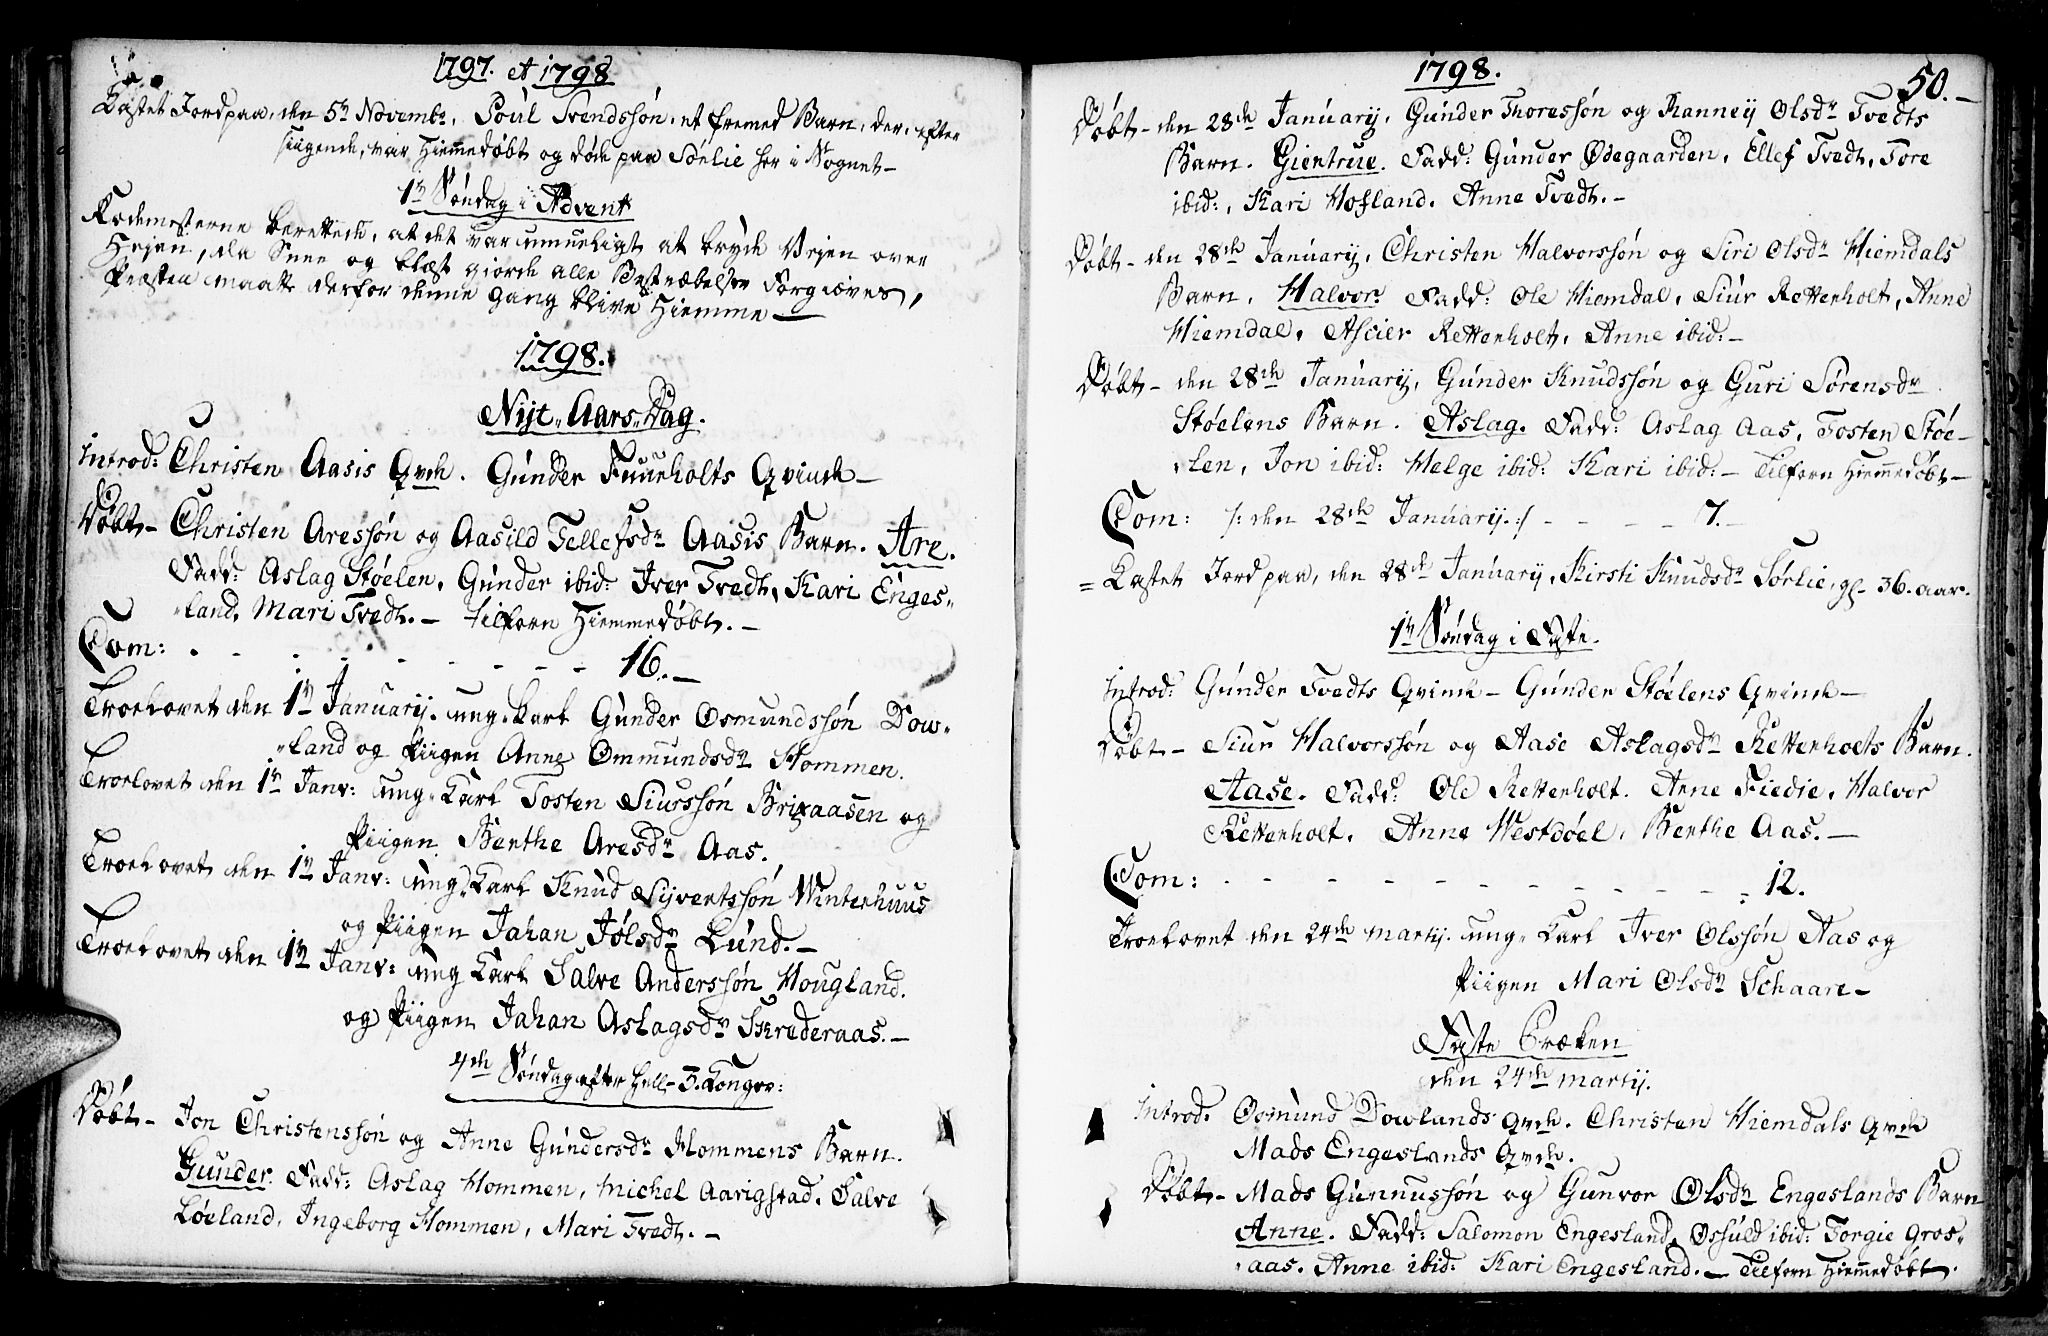 1797. et 1798
Kastet Jord paa, den 5te Novembr. Poul Svendssøn, et fremed Barn, der, efter
siigende, var Hiemmedøbt og døde paa Sørlie her i Sognet –
1te Søndag i Advent
Rodemesterne berettede, at det var umueligt at bryde Vejen over
Hejen, da Snee og blæst giorde alle Bestræbelser Forgiæves,
Præsten maatte derfor denne gang blive Hiemme –
1798.
Nyt-Aars-Dag.
Introd: Christen Aasis Qvde. Gunder Fuureholts Qvinde –
Døbt – Christen Aressøn og Aasild Tellefsdr Aasis Barn. Are.
Fadd: Aslag Støelen, Gunder ibid: Iver Tvedt, Kari Enges-
-land, Mari Tvedt. – tilforn Hiemmedøbt. –
Com: . - - - - - - - 16. –
Troelovet den 1te Januarij. ung-karl Gunder Osmundssøn Dow-
-land og Piigen Anne Ommundsdr Hommen.
Troelovet den 1te Janr: ung-Karl Tosten Siurssøn Brixaasen og
Piigen Berthe Aresdr Aas.
Troelovet den 1te Janr: ung-Karl Knud Sijvertssøn Winterhuus
og Piigen Jahan Jølsdr Lund. –
Troelovet den 1te Janr: ung Karl Salve Anderssøn Hougland.
og Piigen Jahan Aslagsdr Skrederaas. –
4de Søndag efter Hell- 3. Konger:
Døbt – Jon Christenssøn og Anne Gundersdr Hommens Barn.
Gunder. Fadd: Aslag Hommen, Michel Aarigstad. Salve
Løeland, Ingeborg Hommen, Mari Tvedt. –
1798.
50. –
Døbt – den 28de Januarij, Gunder Thoressøn og Ranneij Olsdr Tvedts
Barn. Gientrue. Fadd: Gunder Ødegaarden, Ellef Tvedt, Tore
ibid:, Kari Hofland. Anne Tvedt. –
Døbt – den 28de Januarij, Christen Halvorssøn og Siri Olsdr Hiemdals
Barn, Halvor. Fadd: Ole Hiemdal, Siur Rettenholt, Anne
Hiemdal, Ascier Rettenholt, Anne ibid: –
Døbt – den 28de Januarij, Gunder Knudssøn og Guri Sørensdr
Støelens Barn. Aslag. Fadd: Aslag Aas, Tosten Støe-
-len, Jon ibid: Helge ibid: Kari ibid: – Tilforn Hiemmedøbt –
Com: /: den 28de Januarij. :/ - - - - 7. –
= Kastet Jord paa, den 28de Januarij, Kirsti Knudsdr Sørlie, gl- 36. aar.
1te Søndag i Faste.
Introd: Gunder Tvedts Qvinde – Gunder Støelens Qvinde –
Døbt – Siur Halvorssøn og Aase Aslagsdr Rettenholts Barn.
Aase. Fadd: Ole Rettenholt. Anne Fiedie, Halvor
Rettenholt, Anne Westdøel, Berthe Aas. –
Com: - - - - - - - - - - - 12.
Troelovet den 24de Martij. ung-Karl Iver Olssøn Aas og
Piigen Mari Olsdr Schaare –
Faste Præken
den 24de Martij.
Introd: Osmund Dowlands Qvde. Christen Hiemdals Qvde
Mads Engeslands Qvde.
Døbt – Mads Gunnussøn og Gunvor Olsdr Engeslands Barn
Anne. Fadd: Salomon Engesland, Oshuld ibid: Torgie Gros-
-aas. Anne ibid: Kari Engesland. – Tilforn Hiemmedøbt.